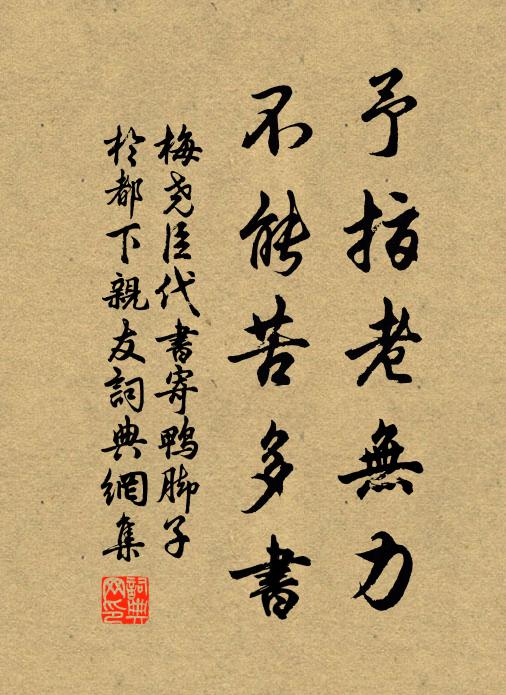 予指老無力
不能苦多書
梅堯臣代書寄鴨脚子
於都下親友詞典網集
詞典网印